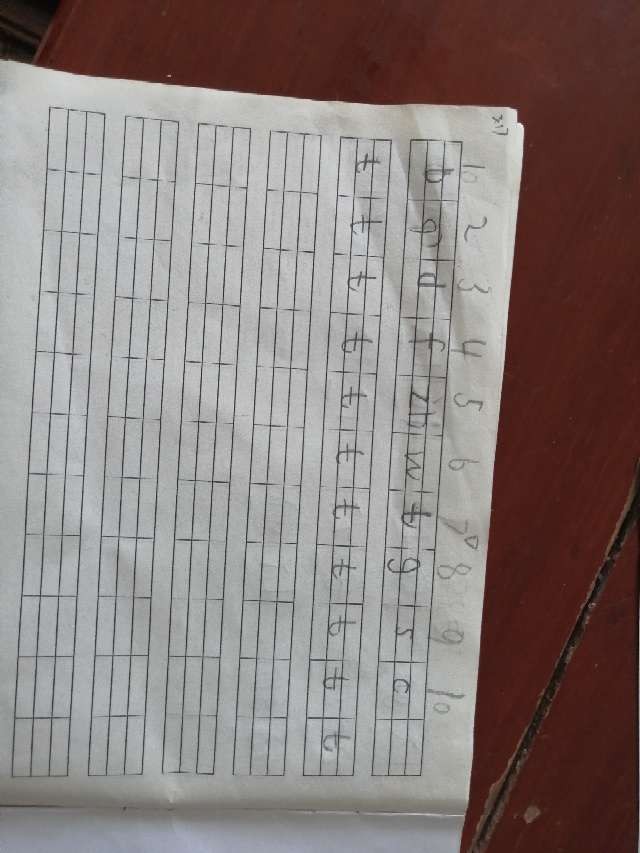 10 2 3 4 5 6 7 8 9 10
b g d f zh w t g s c
t t t t t t t t t t t